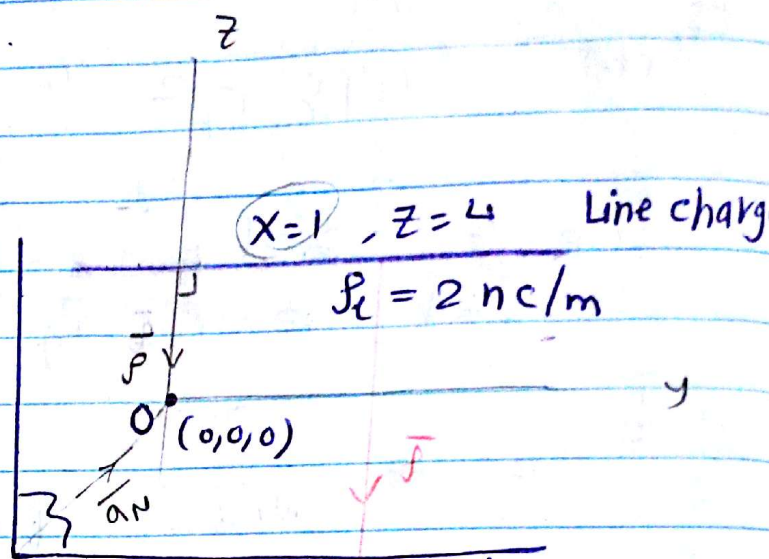 z
x=1 , z=4 Line charg
ρℓ = 2 nc/m
ρ̄
y
O (0,0,0)
ρ̄
āN